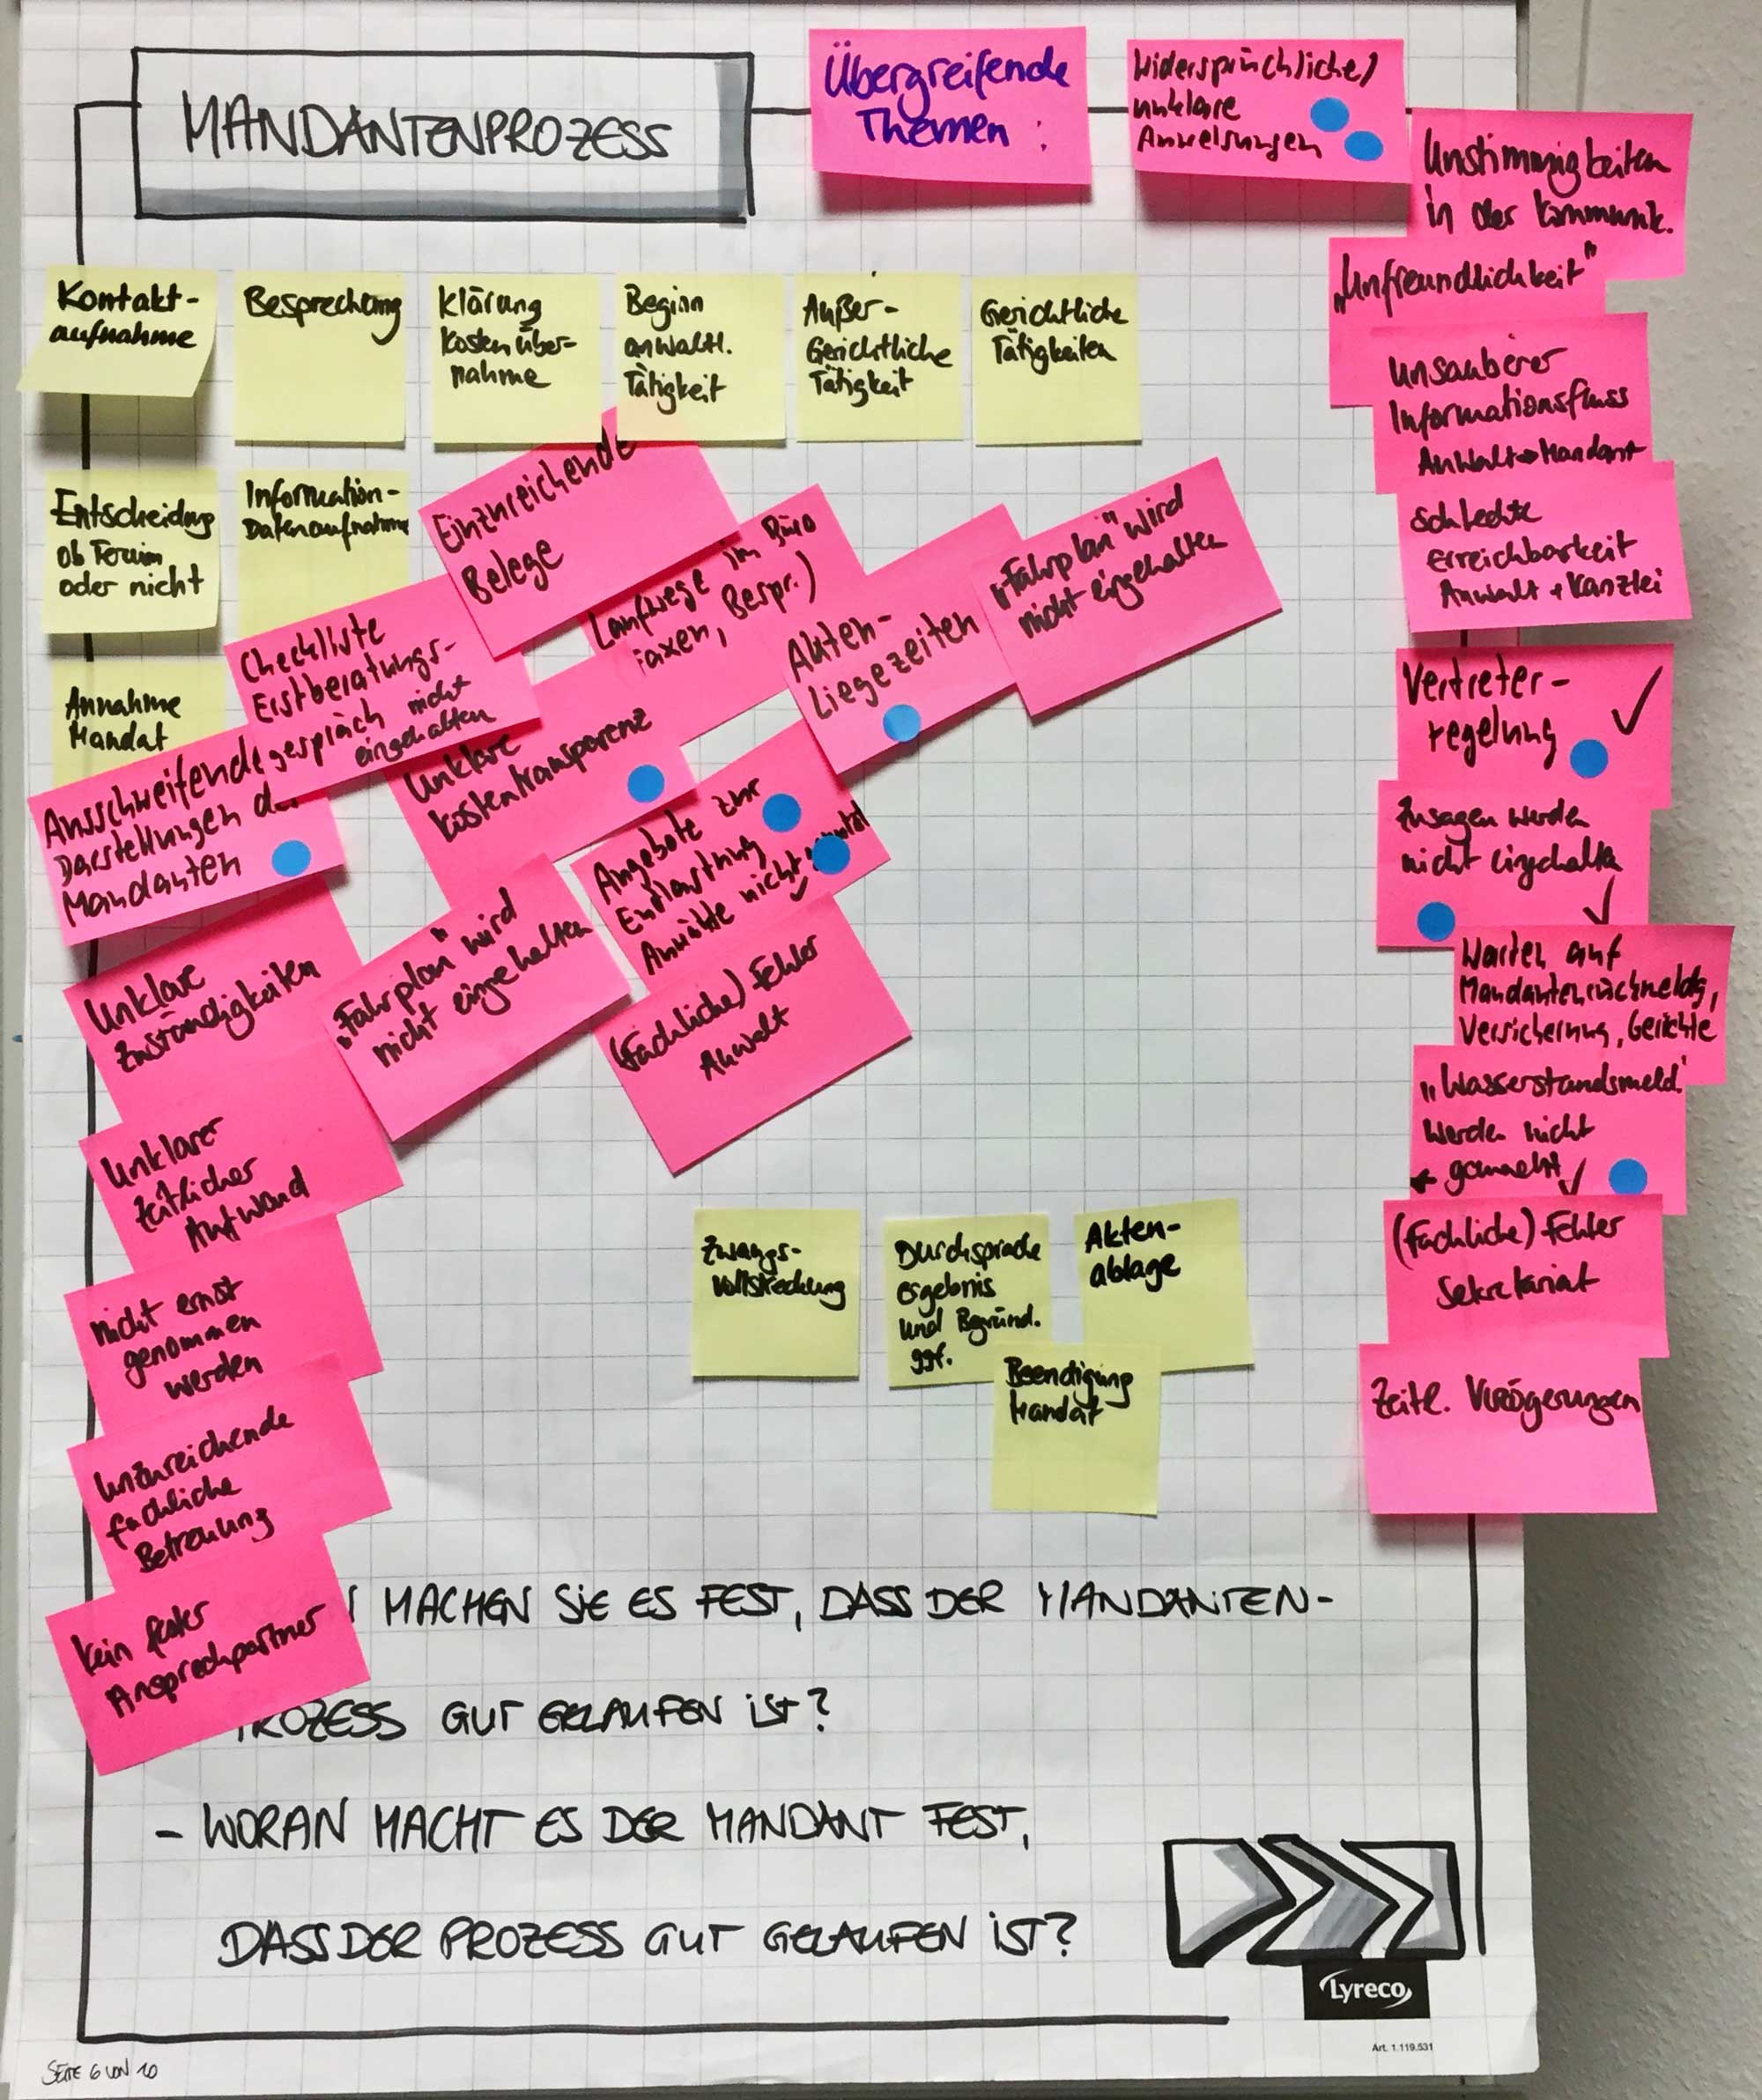 MANDANTENPROZESS
Übergreifende
Themen :
Widersprüchliche/
unklare
Anweisungen
Unstimmigkeiten
in der Kommunik.
„Unfreundlichkeit"
Unsauberer
Informationsfluss
Anwalt → Mandant
Schlechte
Erreichbarkeit
Anwalt + Kanzlei
Vertreter-
regelung
Zusagen werden
nicht eingehalten
Warten auf
Mandantenrückmeldg,
Versicherung, Gerichte
„Wasserstandsmeld."
werden nicht
gemacht
(Fachliche) Fehler
Sekretariat
Zeitl. Verzögerungen
Kontakt-
aufnahme
Besprechung
Klärung
Kostenüber-
nahme
Beginn
anwaltl.
Tätigkeit
Außer-
Gerichtliche
Tätigkeit
Gerichtliche
Tätigkeiten
Entscheidung
ob Termin
oder nicht
Information-
Datenaufnahme
Annahme
Mandat
Einzureichende
Belege
Laufwege im Büro
Faxen, Bespr.)
Akten-
Liegezeiten
„Fahrplan" wird
nicht eingehalten
Checkliste
Erstberatungs-
gespräch nicht
eingehalten
Unklare
Kostentransparenz
Angebote zur
Entlastung
Anwälte nicht
Ausschweifende
Darstellungen
Mandanten
Unklare
Zuständigkeiten
„Fahrplan" wird
nicht eingehalten
(Fachliche) Fehler
Anwalt
Unklarer
zeitlicher
Aufwand
nicht ernst
genommen
werden
Unzureichende
fachliche
Betreuung
Kein fester
Ansprechpartner
Zwangs-
vollstreckung
Durchsprache
ergebnis
und Begründ.
ggf.
Akten-
ablage
Beendigung
Mandat
MACHEN SIE ES FEST, DASS DER MANDANTEN-
PROZESS GUT GELAUFEN IST?
- WORAN MACHT ES DER MANDANT FEST,
DASS DER PROZESS GUT GELAUFEN IST?
Lyreco
Art. 1.119.531
SEITE 6 VON 10